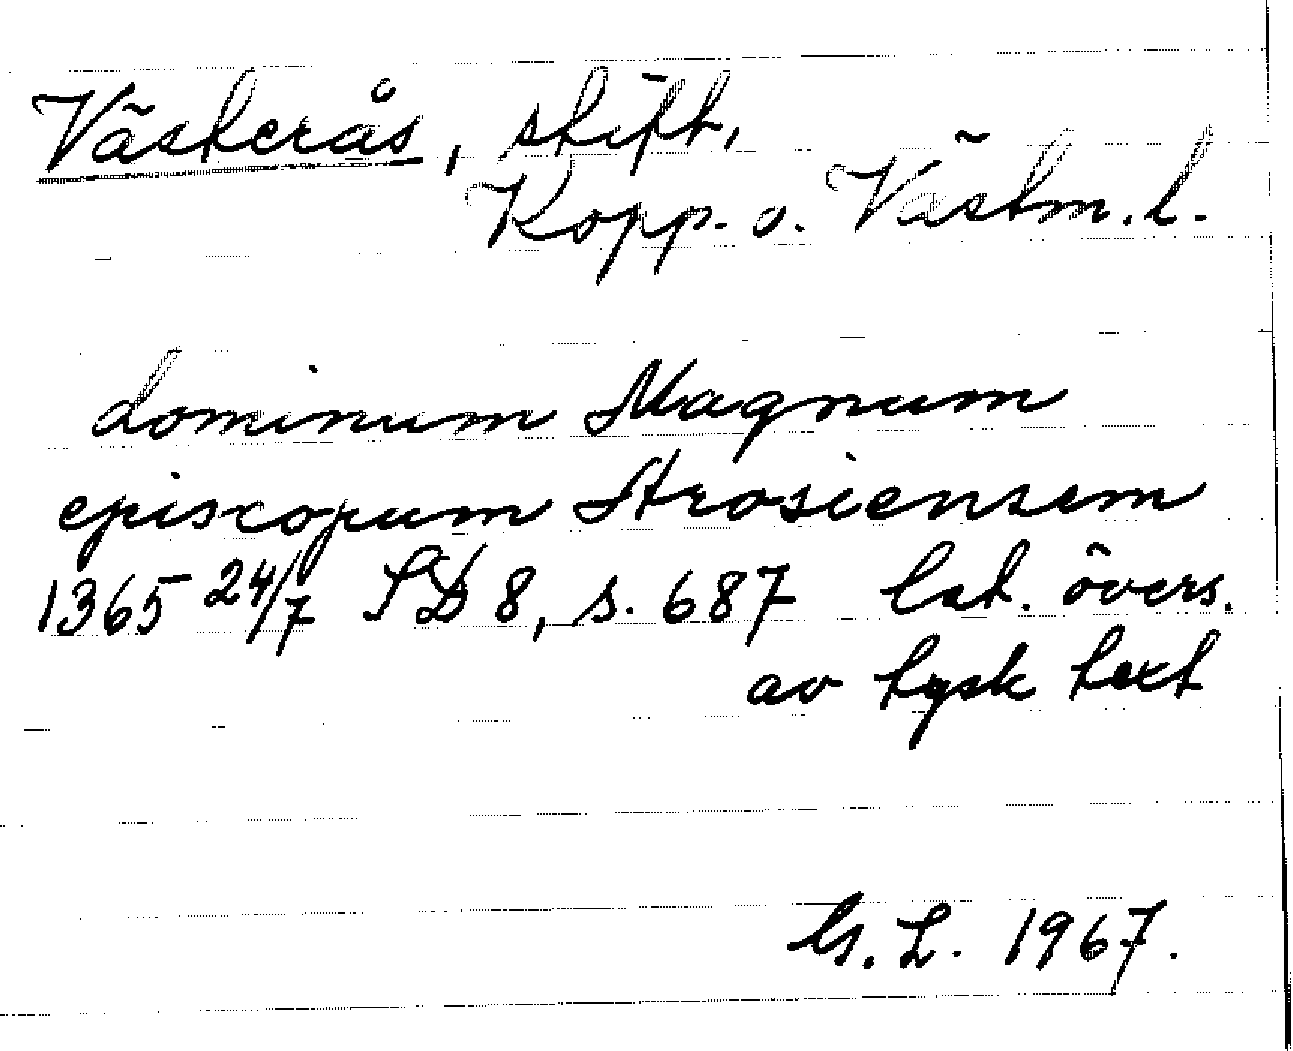 Västerås, stift,
Kopp. o. Västm. l.
dominum Magnum
episcopum Arosiensem
1365 24/7 SD 8, s. 687 lat. övers.
av tysk text
G. L. 1967.